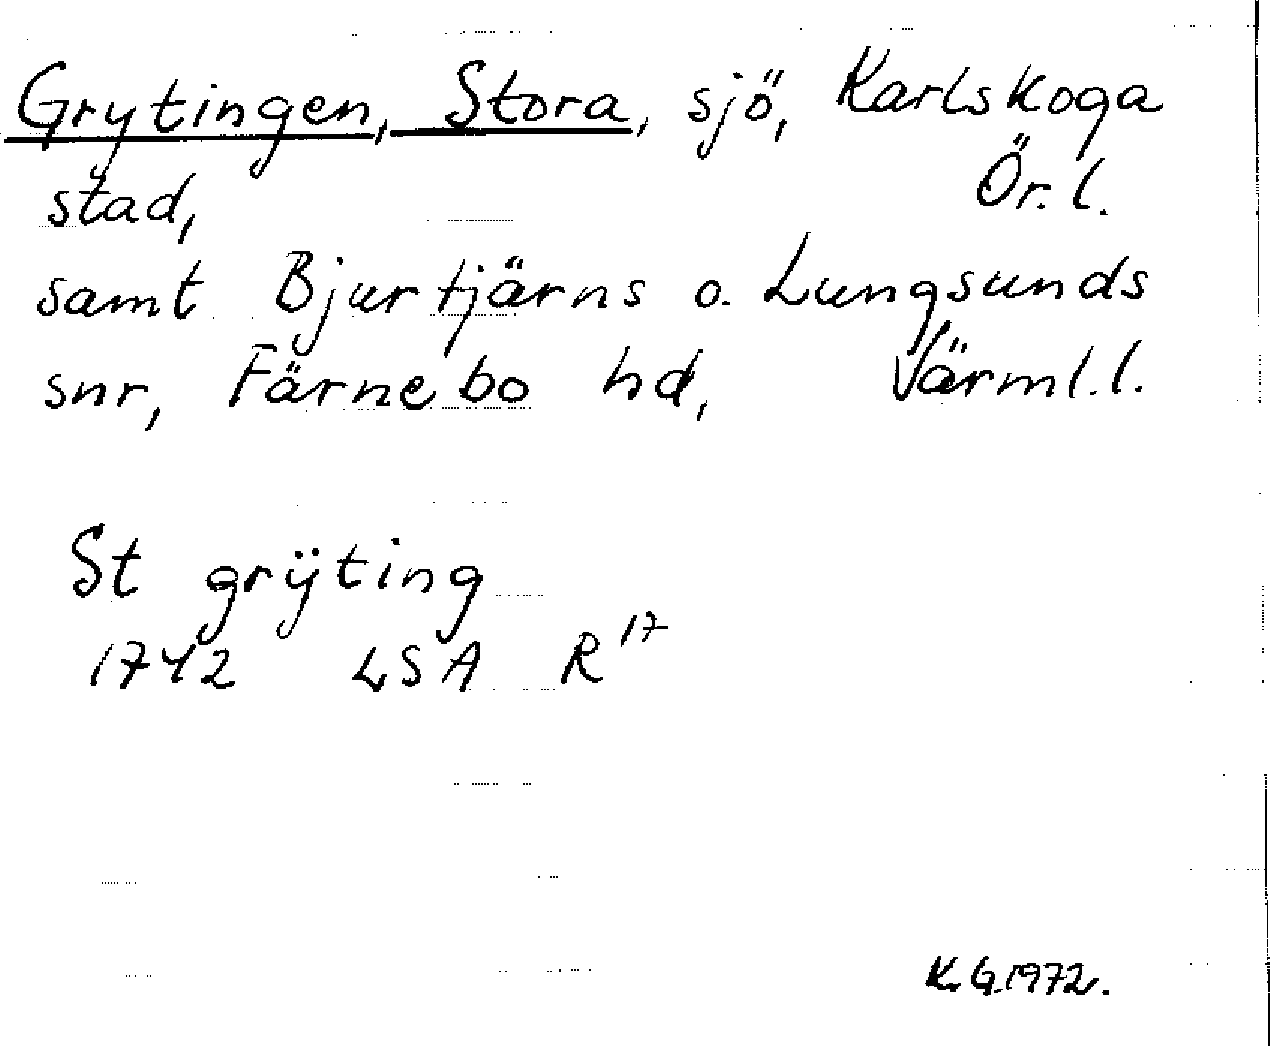 Grytingen, Stora, sjö, Karlskoga
stad, Ör. l.
samt Bjurtjärns o. Lungsunds
snr, Färnebo hd, Värml. l.
St grÿting
1742 LSA R 17
K. G. 1972.